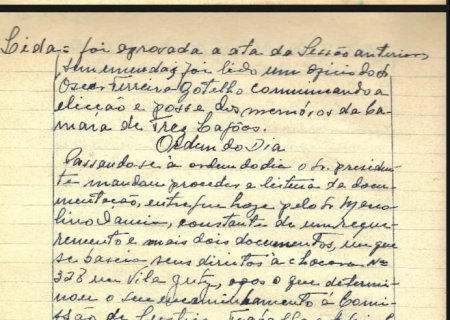 Lida = foi aprovada a ata da Sessão anterior,
sem emendas, foi lido um oficio do S.
Oscar Ferreira Botelho communicando a
eleição e posse dos membros da Ca-
mara de Trez Lagôas.
Ordem do Dia
Passando-se á ordem do dia o Sr. presiden-
te mandou proceder a leitura da docu-
mentação, entregue hoje pelo Sr.
constante de um reque-
rimento e mais dois documentos, em que
se baseia seus direitos á chacara Nº
328 em Vila após o que determi-
nou o seu encaminhamento á Comis-
são de Justiça,